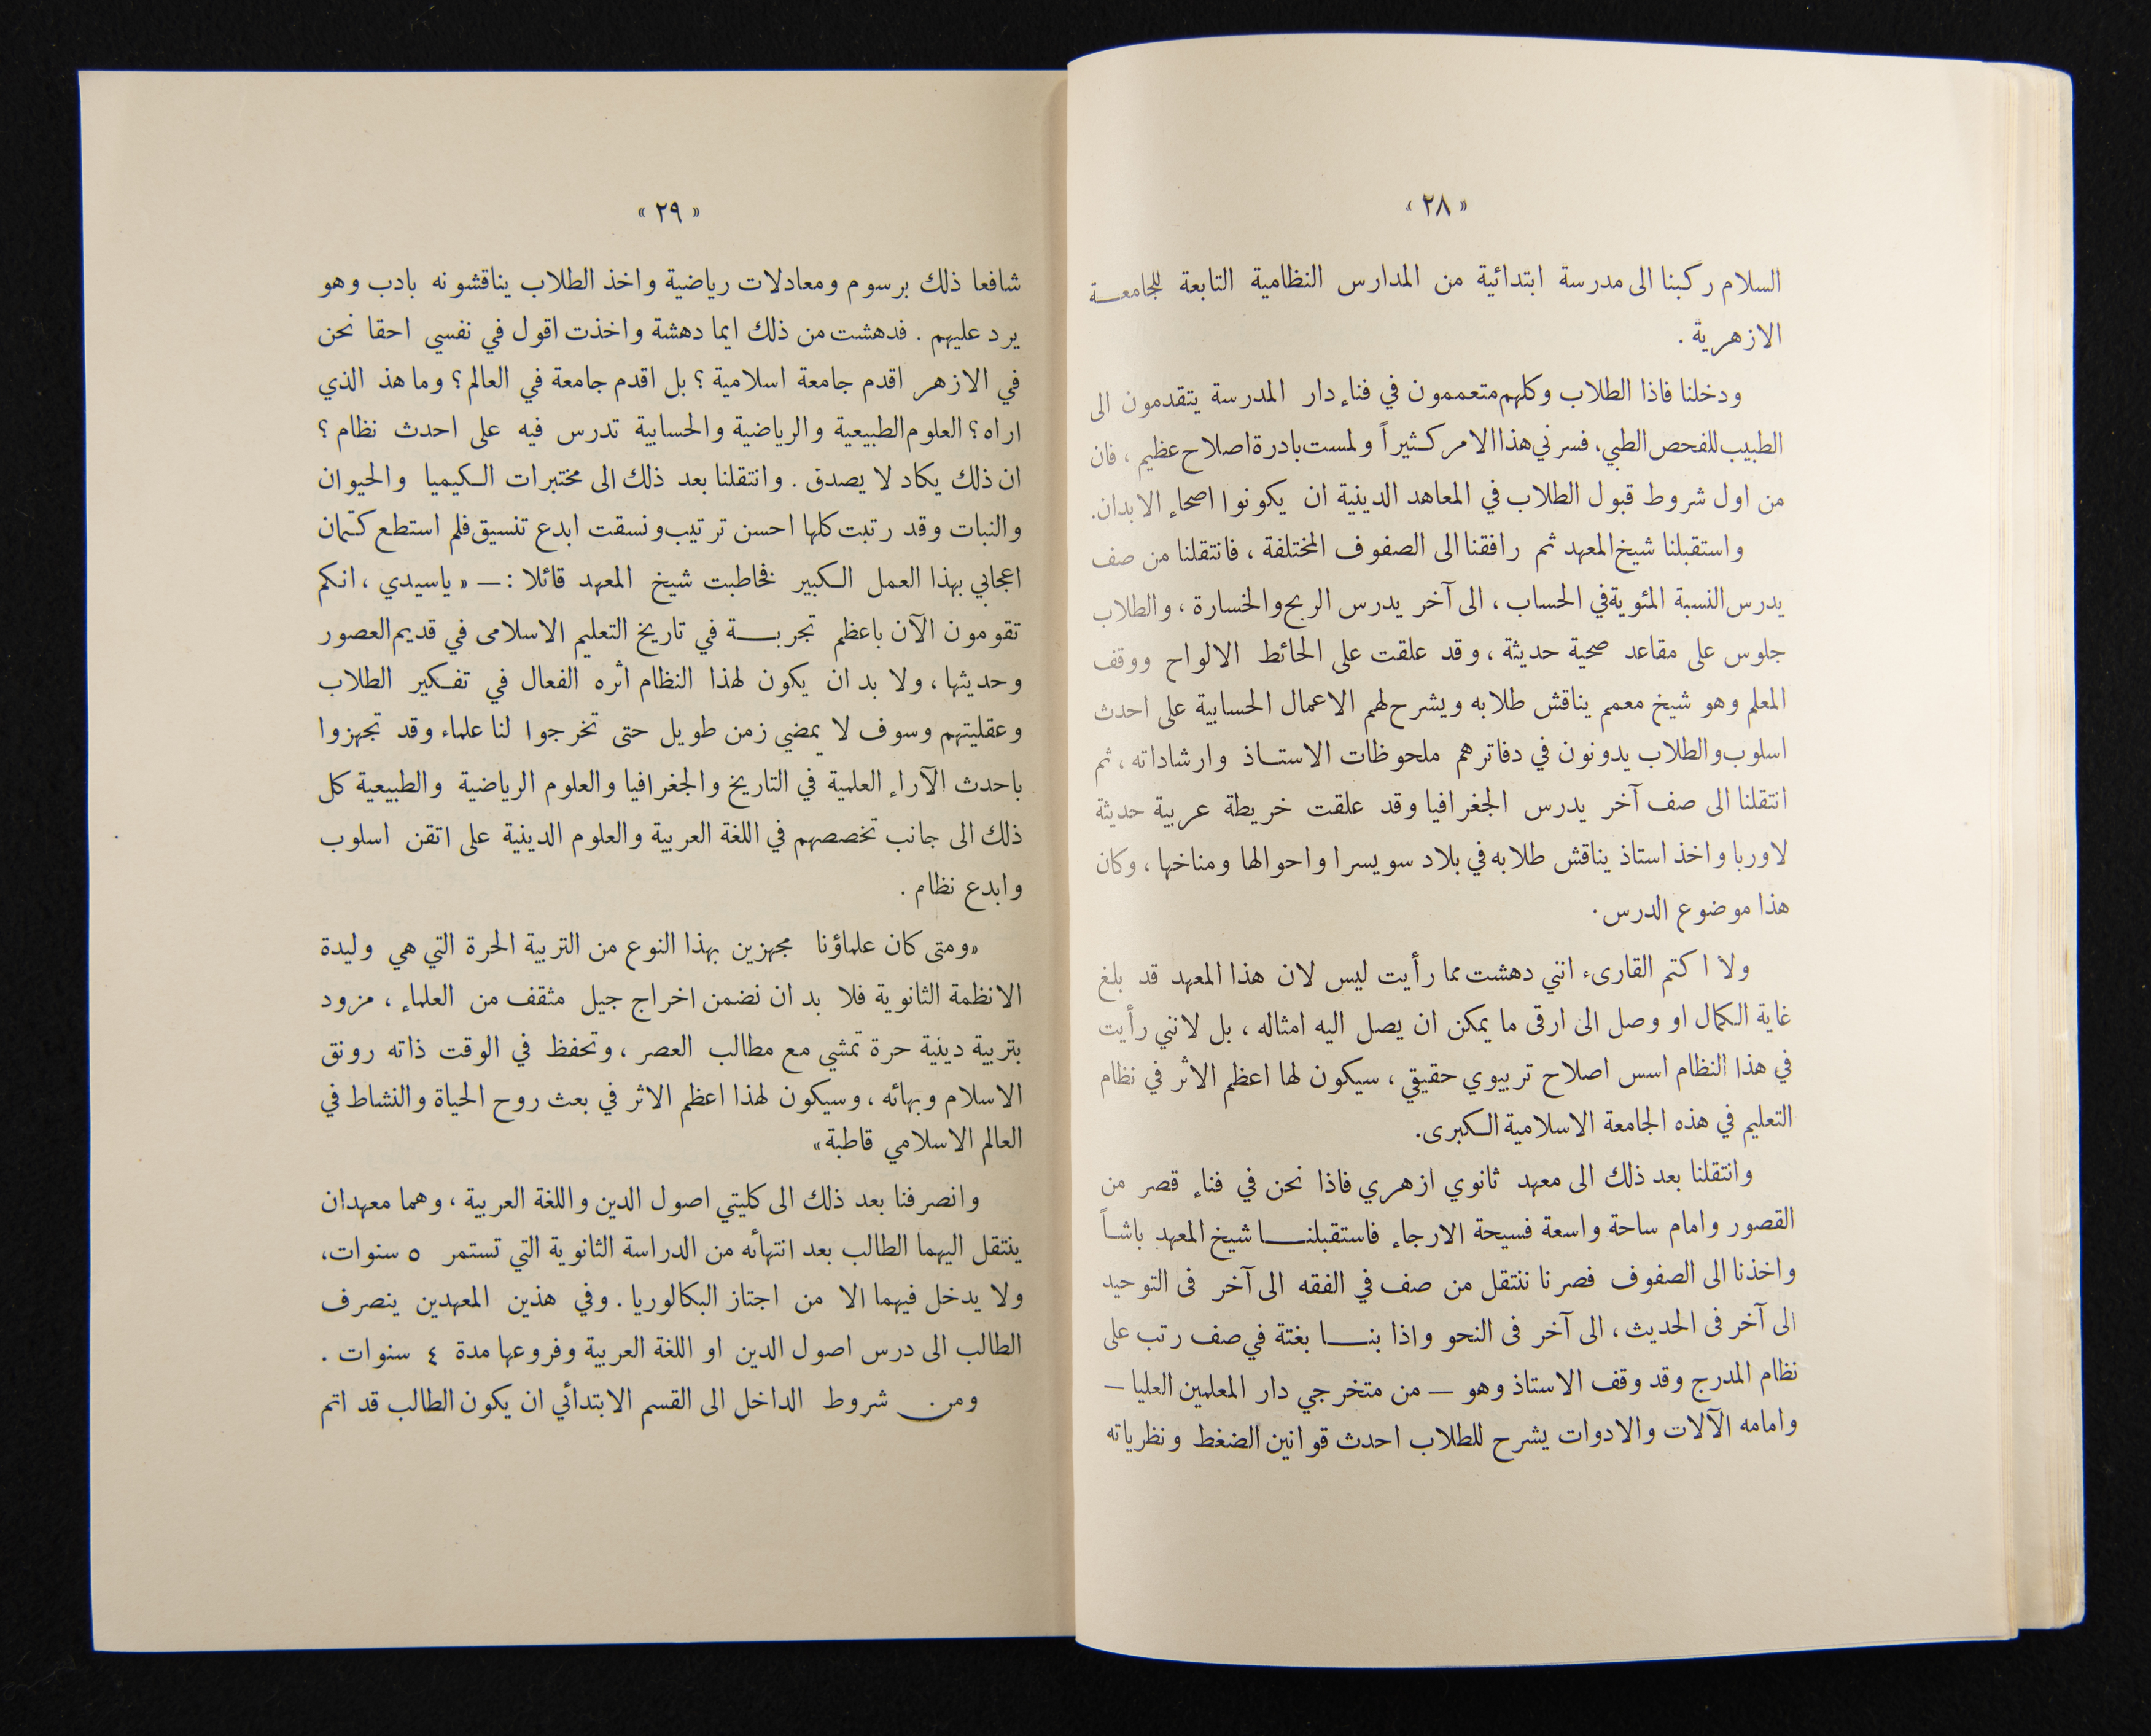 «٢٨»
السلام ركبنا الى مدرسة ابتدائية من المدارس النظامية التابعة للجامعـــة
الازهرية .
ودخلنا فاذا الطلاب وكلهم متعممون في فناء دار المدرسة يتقدمون الى
الطبيب للفحص الطبي، فسرني هذا الامر كثيراً ولمست بادرة اصلاح عظيم ، فان
من اول شروط قبول الطلاب في المعاهد الدينية ان يكونوا اصحاء الابدان.
واستقبلنا شيخ المعهد ثم رافقنا الى الصفوف المختلفة ، فانتقلنا من صف
يدرس النسبة المئوية في الحساب ، الى آخر يدرس الربح والخسارة ، والطلاب
جلوس على مقاعد صحية حديثة ، وقد علقت على الحائط الالواح ووقف
المعلم وهو شيخ معمم يناقش طلابه ويشرح لهم الاعمال الحسابية على احدث
اسلوب والطلاب يدونون في دفاترهم ملحوظات الاستـــاذ وارشاداته ، ثم
انتقلنا الى صف آخر يدرس الجغرافيا وقد علقت خريطة عربية حديثة
لاوربا واخذ استاذ يناقش طلابه في بلاد سويسرا واحوالها ومناخها ، وكان
هذا موضوع الدرس.
ولا اكتم القارىء انني دهشت مما رأيت ليس لان هذا المعهد قد بلغ
غاية الكمال او وصل الى ارقى ما يمكن ان يصل اليه امثاله ، بل لانني رأيت
في هذا النظام اسس اصلاح تربيوي حقيقي ، سيكون لها اعظم الاثر في نظام
التعليم في هذه الجامعة الاسلامية الكبرى.
وانتقلنا بعد ذلك الى معهد ثانوي ازهري فاذا نحن في فناء قصر من
القصور وامام ساحة واسعة فسيحة الارجاء فاستقبلنـــا شيخ المعهد باشاً
واخذنا الى الصفوف فصرنا ننتقل من صف في الفقه الى آخر فى التوحيد
الى آخر فى الحديث ، الى آخر فى النحو واذا بنـــا بغتة في صف رتب على
نظام المدرج وقد وقف الاستاذ وهو — من متخرجي دار المعلمين العليا —
وامامه الآلات والادوات يشرح للطلاب احدث قوانين الضغط ونظرياته
«٢٩»
شافعا ذلك برسوم ومعادلات رياضية واخذ الطلاب يناقشونه بادب وهو
يرد عليهم . فدهشت من ذلك ايما دهشة واخذت اقول في نفسي احقا نحن
في الازهر اقدم جامعة اسلامية ؟ بل اقدم جامعة في العالم ؟ وما هذ الذي
اراه ؟ العلوم الطبيعية والرياضية والحسابية تدرس فيه على احدث نظام ؟
ان ذلك يكاد لا يصدق . وانتقلنا بعد ذلك الى مختبرات الكيميا والحيوان
والنبات وقد رتبت كلها احسن ترتيب ونسقت ابدع تنسيق فلم استطع كتمان
اعجابي بهذا العمل الكبير فخاطبت شيخ المعهد قائلا : — « ياسيدي ، انكم
تقومون الآن باعظم تجربـــة في تاريخ التعليم الاسلامى في قديم العصور
وحديثها ، ولا بد ان يكون لهذا النظام أثره الفعال في تفكير الطلاب
وعقليتهم وسوف لا يمضي زمن طويل حتى تخرجوا لنا علماء وقد تجهزوا
باحدث الآراء العلمية في التاريخ والجغرافيا والعلوم الرياضية والطبيعية كل
ذلك الى جانب تخصصهم في اللغة العربية والعلوم الدينية على اتقن اسلوب
وابدع نظام .
«ومتى كان علماؤنا مجهزين بهذا النوع من التربية الحرة التي هي وليدة
الانظمة الثانوية فلا بد ان نضمن اخراج جيل مثقف من العلماء ، مزود
بتربية دينية حرة تمشي مع مطالب العصر ، وتحفظ في الوقت ذاته رونق
الاسلام وبهائه ، وسيكون لهذا اعظم الاثر في بعث روح الحياة والنشاط في
العالم الاسلامي قاطبة»
وانصرفنا بعد ذلك الى كليتي اصول الدين واللغة العربية ، وهما معهدان
ينتقل اليهما الطالب بعد انتهائه من الدراسة الثانوية التي تستمر ٥ سنوات،
ولا يدخل فيهما الا من اجتاز البكالوريا . وفي هذين المعهدين ينصرف
الطالب الى درس اصول الدين او اللغة العربية وفروعها مدة ٤ سنوات .
ومن شروط الداخل الى القسم الابتدائي ان يكون الطالب قد اتم